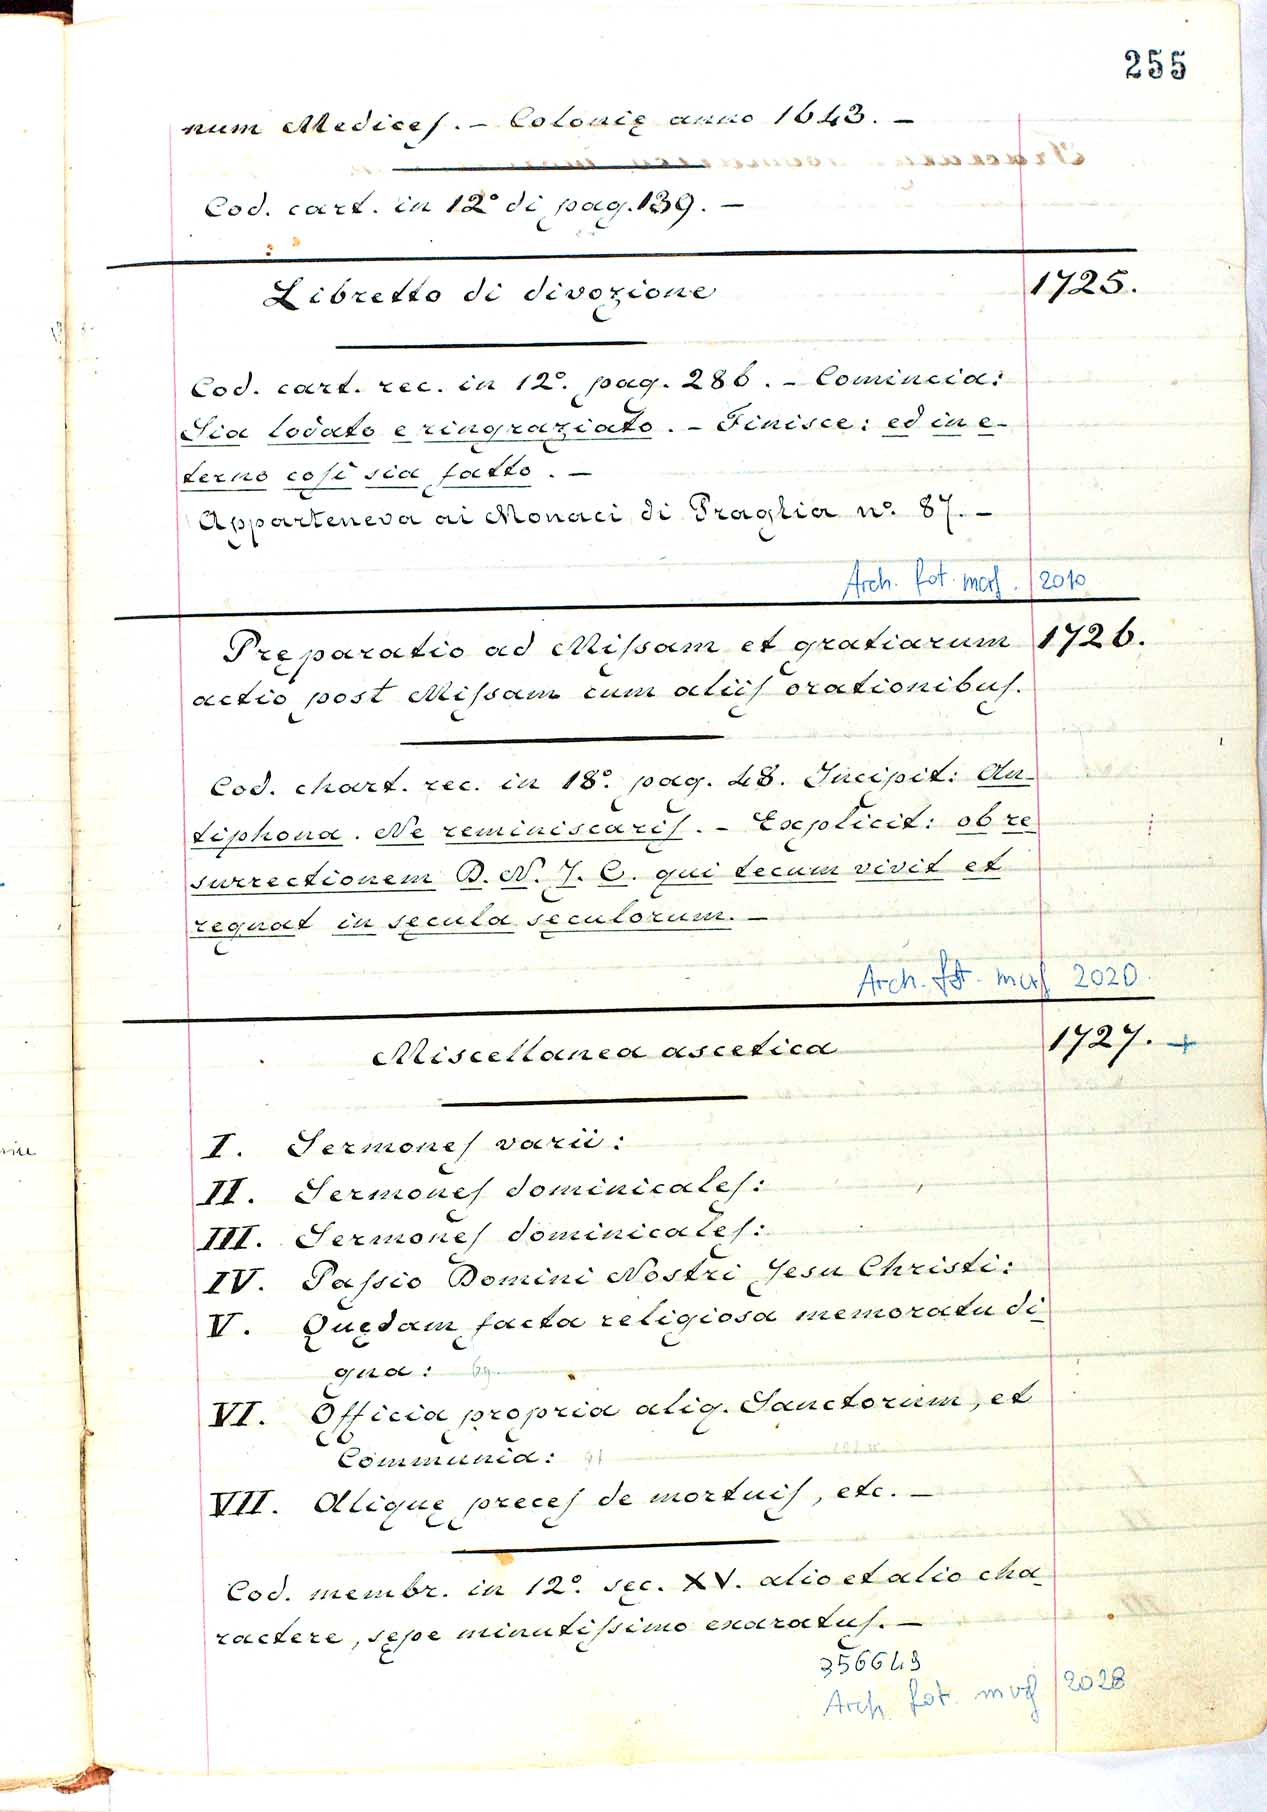 255
num Medices. - Colonię anno 1643. -
Cod. cart. in 12° di pag. 139. -
Libretto di divozione 1725.
Cod. cart. rec. in 12°. pag. 286. - Comincia:
Sia lodato e ringraziato. - Finisce: ed in e-
terno cosi sia fatto. -
Apparteneva ai Monaci di Praglia n°. 87. -
Arch. fot. marc. 2010
Pręparatio ad Missam et gratiarum 1726.
actio post Missam cum aliis orationibus.
Cod. chart. rec. in 18°. pag. 48. Incipit: An-
tiphona. Ne reminiscaris. - Explicit: ob re
surrectionem D. N. J. C. qui tecum vivit et
regnat in sęcula sęculorum. -
Arch. fot. 2020
Miscellanea ascetica 1727. +
I. Sermones varii:
II. Sermones dominicales:
III. Sermones dominicales:
IV. Passio Domini Nostri Jesu Christi:
V. Quędam facta religiosa memoratu di-
gna:
VI. Officia propria aliq. Sanctorum, et
Communia:
VII. Alique preces de mortuis, etc. -
Cod. membr. in 12°. sec. XV. alio et alio cha-
ractere, sępe minutissimo exaratus. -
356649
Arch. fot. 2028